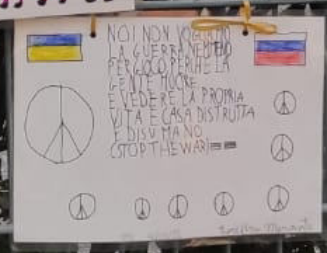 NOI NON VOGLIAMO
LA GUERRA NEMMENO
PER GIOCO PERCHE LA
GENTE MUORE
E VEDERE LA PROPRIA
VITA E CASA DISTRUTTA
E DISUMANO
(STOP THE WAR)